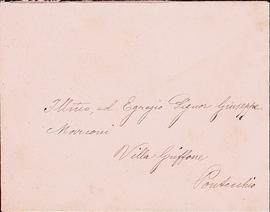 Illmo, ed Egregio Signor Giuseppe
Marconi
Villa Griffone
Pontecchio